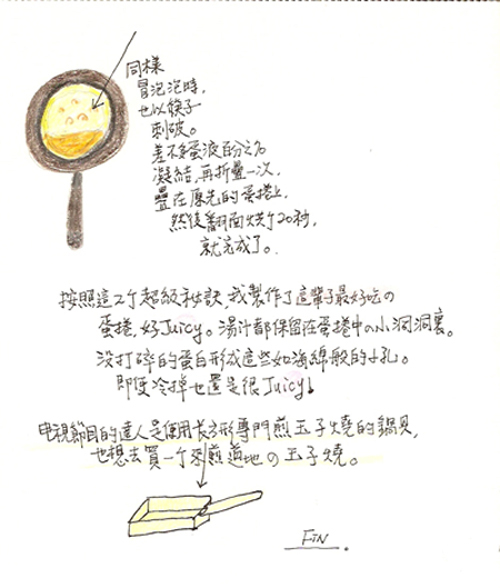 同樣
冒泡泡時,
也以筷子
刺破。
差不多蛋液百分之70
凝結,再折疊一次,
疊在原先的蛋捲上,
然後翻面烘个20秒,
就完成了。
按照這2个超級秘訣,我製作了這輩子最好吃の
蛋捲,好Juicy。湯汁都保留在蛋捲中の小洞洞裏。
沒打碎的蛋白形成這些如海綿般的小孔。
即使冷掉也還是很Juicy!
电視節目的達人是使用长方形專門煎玉子燒的鍋具,
也想去買一个來煎道地の玉子燒。
FIN.